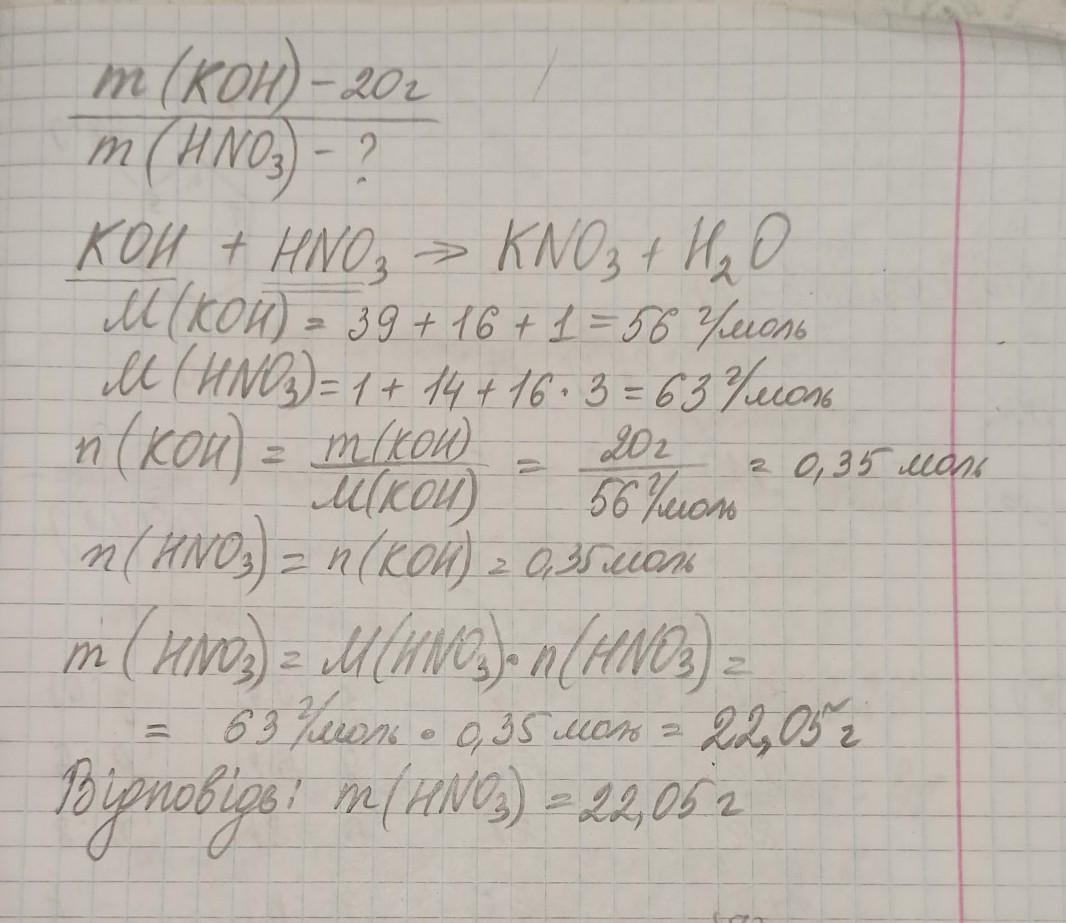 m(KOH) - 20г
m(HNO₃) - ?
KOH + HNO₃ → KNO₃ + H₂O
M(KOH) = 39 + 16 + 1 = 56 г/моль
M(HNO₃) = 1 + 14 + 16 · 3 = 63 г/моль
n(KOH) = m(KOH)/M(KOH) = 20г/56 г/моль = 0,35 моль
n(HNO₃) = n(KOH) = 0,35 моль
m(HNO₃) = M(HNO₃) · n(HNO₃) =
= 63 г/моль · 0,35 моль = 22,05 г
Відповідь: m(HNO₃) = 22,05 г